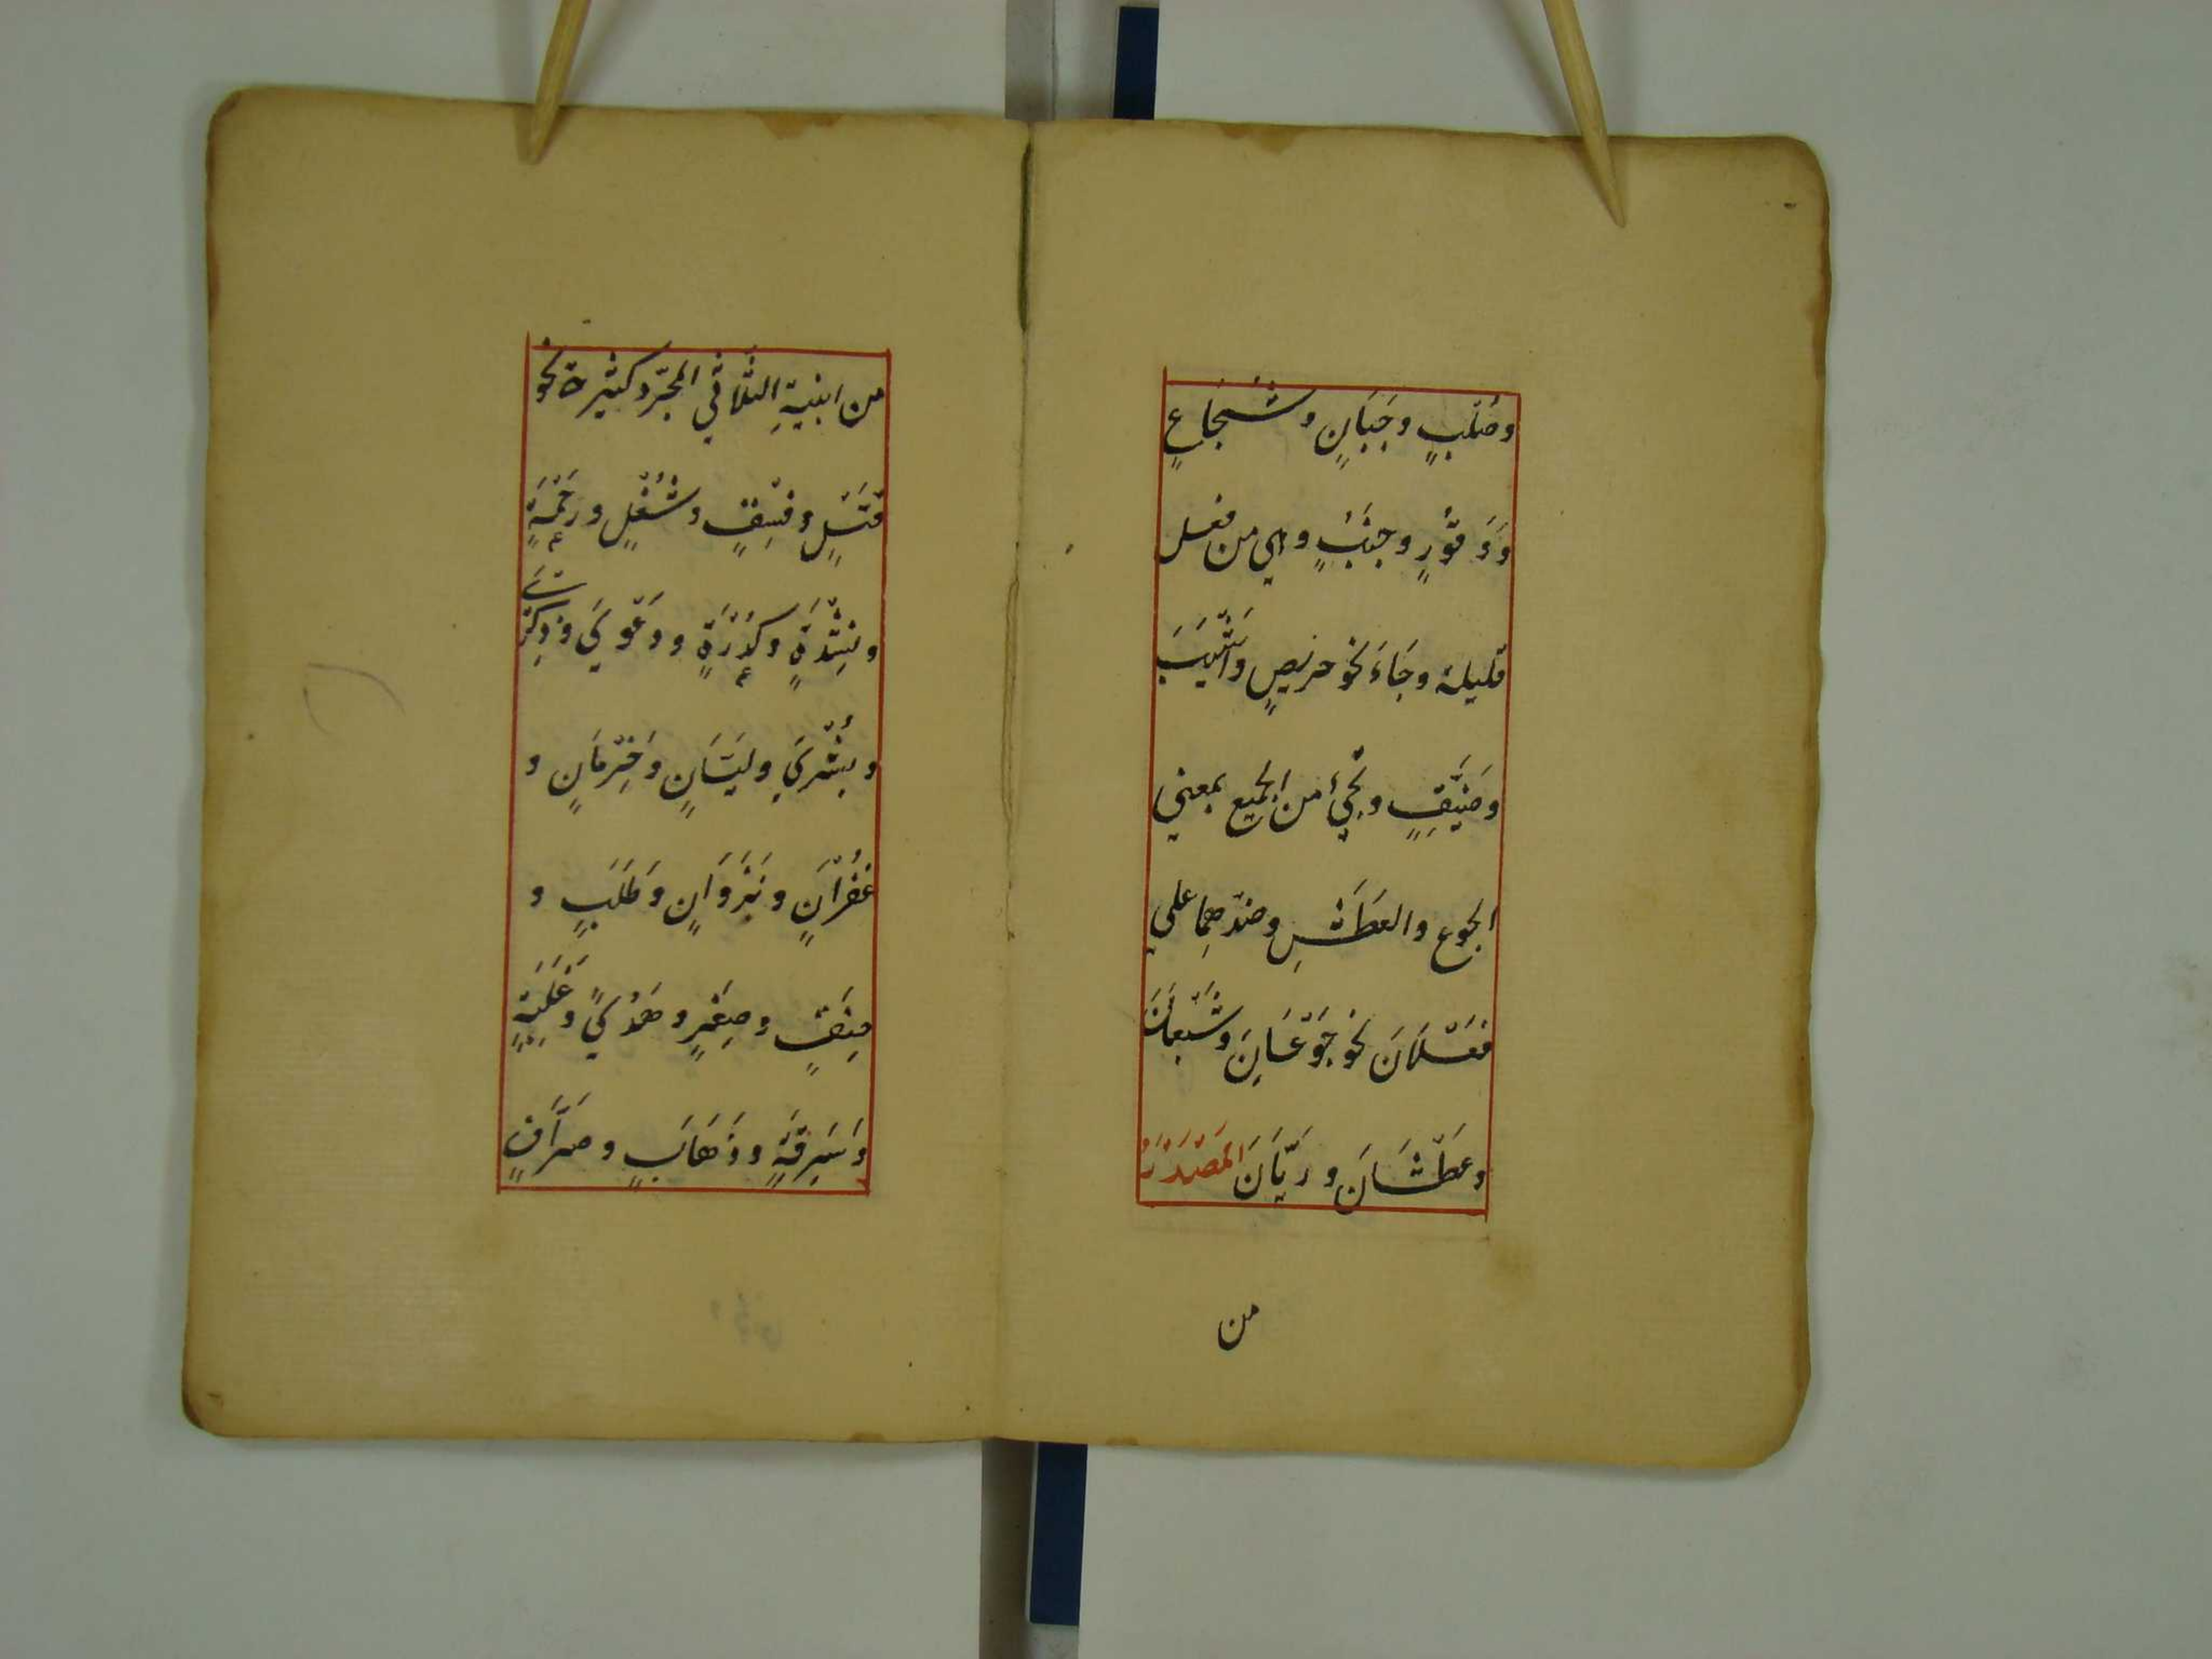 وصُلْبٍ وجَبَانٍ وشُجَاعٍ
وَوَقُورٍ وجنُبٍ وهي من فعل
قليلة وجَاءَ نحو حريصٍ وَاَشْيَبَ
وضَيِّقٍ ويجيُ من الجميع بمعني
الجوع والعَطَشِ وضدهِما علي
فَعْلَانَ نحو جَوْعَانَ وشَبْعَانَ
وعَطْشَانَ ورَيَّانَ المَصْدَرُ
من
من ابنيةِ الثلَاثي المجرّد كثيرة نحو
قَتْلٍ وفِسْقٍ وشُغْلٍ ورَحْمَةٍ
ونِشْدَةٍ وكُدْرَةٍ ودَعْوَي وذِكْرَي
وبُشْرَي وليَّانٍ وحِرْمَانٍ و
غُفْرَانٍ ونَزَوَانٍ وطَلَبٍ و
خنِقٍ وصِغَرٍ وهُدًي وغَلَبَةٍ
وَسَرِقَةٍ وذَهَابٍ وصِرَافٍ